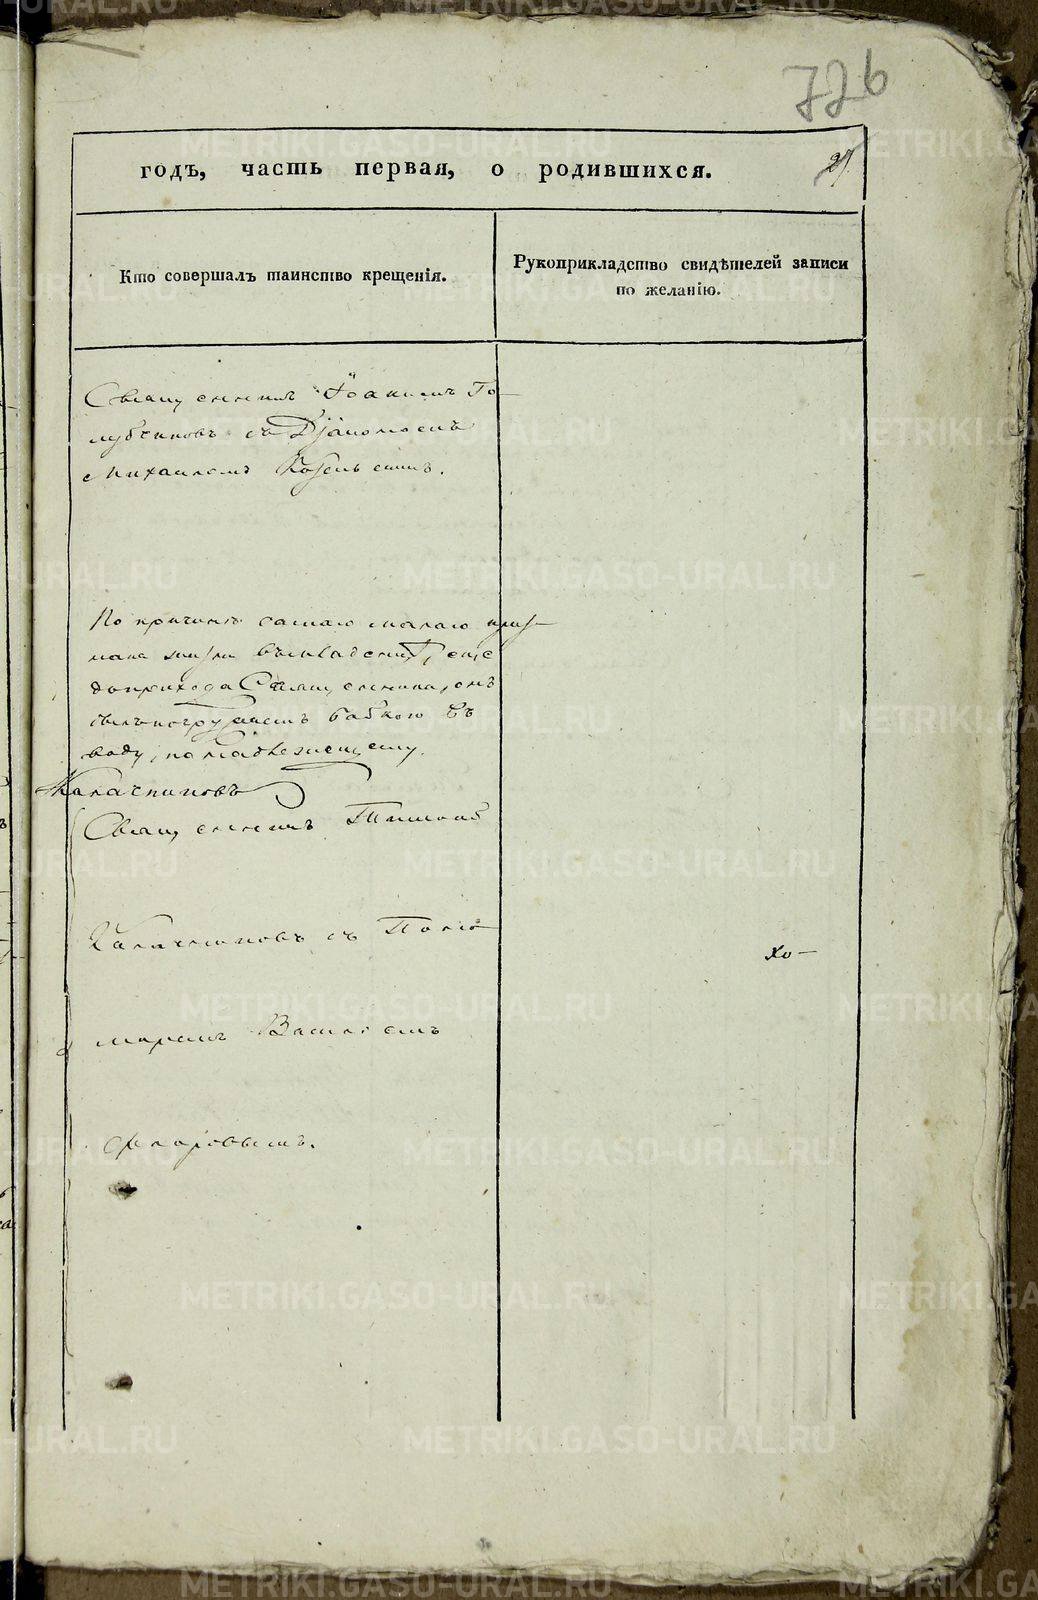 726
годъ, часть первая, о родившихся.
27
Кто совершалъ таинство крещенія.
Рукоприкладство свидѣтелей записи
по желанію.
Священникъ Іоакимъ Го-
лубчиковъ съ Діакономъ
Михаиломъ
По причинѣ самаго малаго приз-
нака жизни въ младенцѣ, еще
до прихода Священника, онъ
былъ погруженъ бабкою въ
воду, по надлежащему.
Калачниковъ
Священникъ
Калачниковъ съ Поно-
хо-
маремъ Василіемъ
Флоровымъ.
METRIKI.GASO-URAL.RU